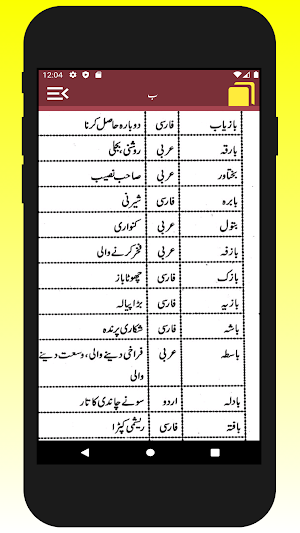 12:04
ب
بازیاب فارسی دوبارہ حاصل کرنا
بارقہ عربی روشنی بجلی
بختاور عربی صاحب نصیب
بابرہ فارسی شیرنی
بتول عربی کنواری
بازفہ عربی فخر کرنے والی
بازک فارسی چھوٹا باز
بازیہ فارسی بڑا پیالہ
باشہ فارسی شکاری پرندہ
باسطہ عربی فراخی دینے والی، وسعت دینے
والی
بادلہ اردو سونے چاندی کا تار
بافتہ فارسی ریشمی کپڑا